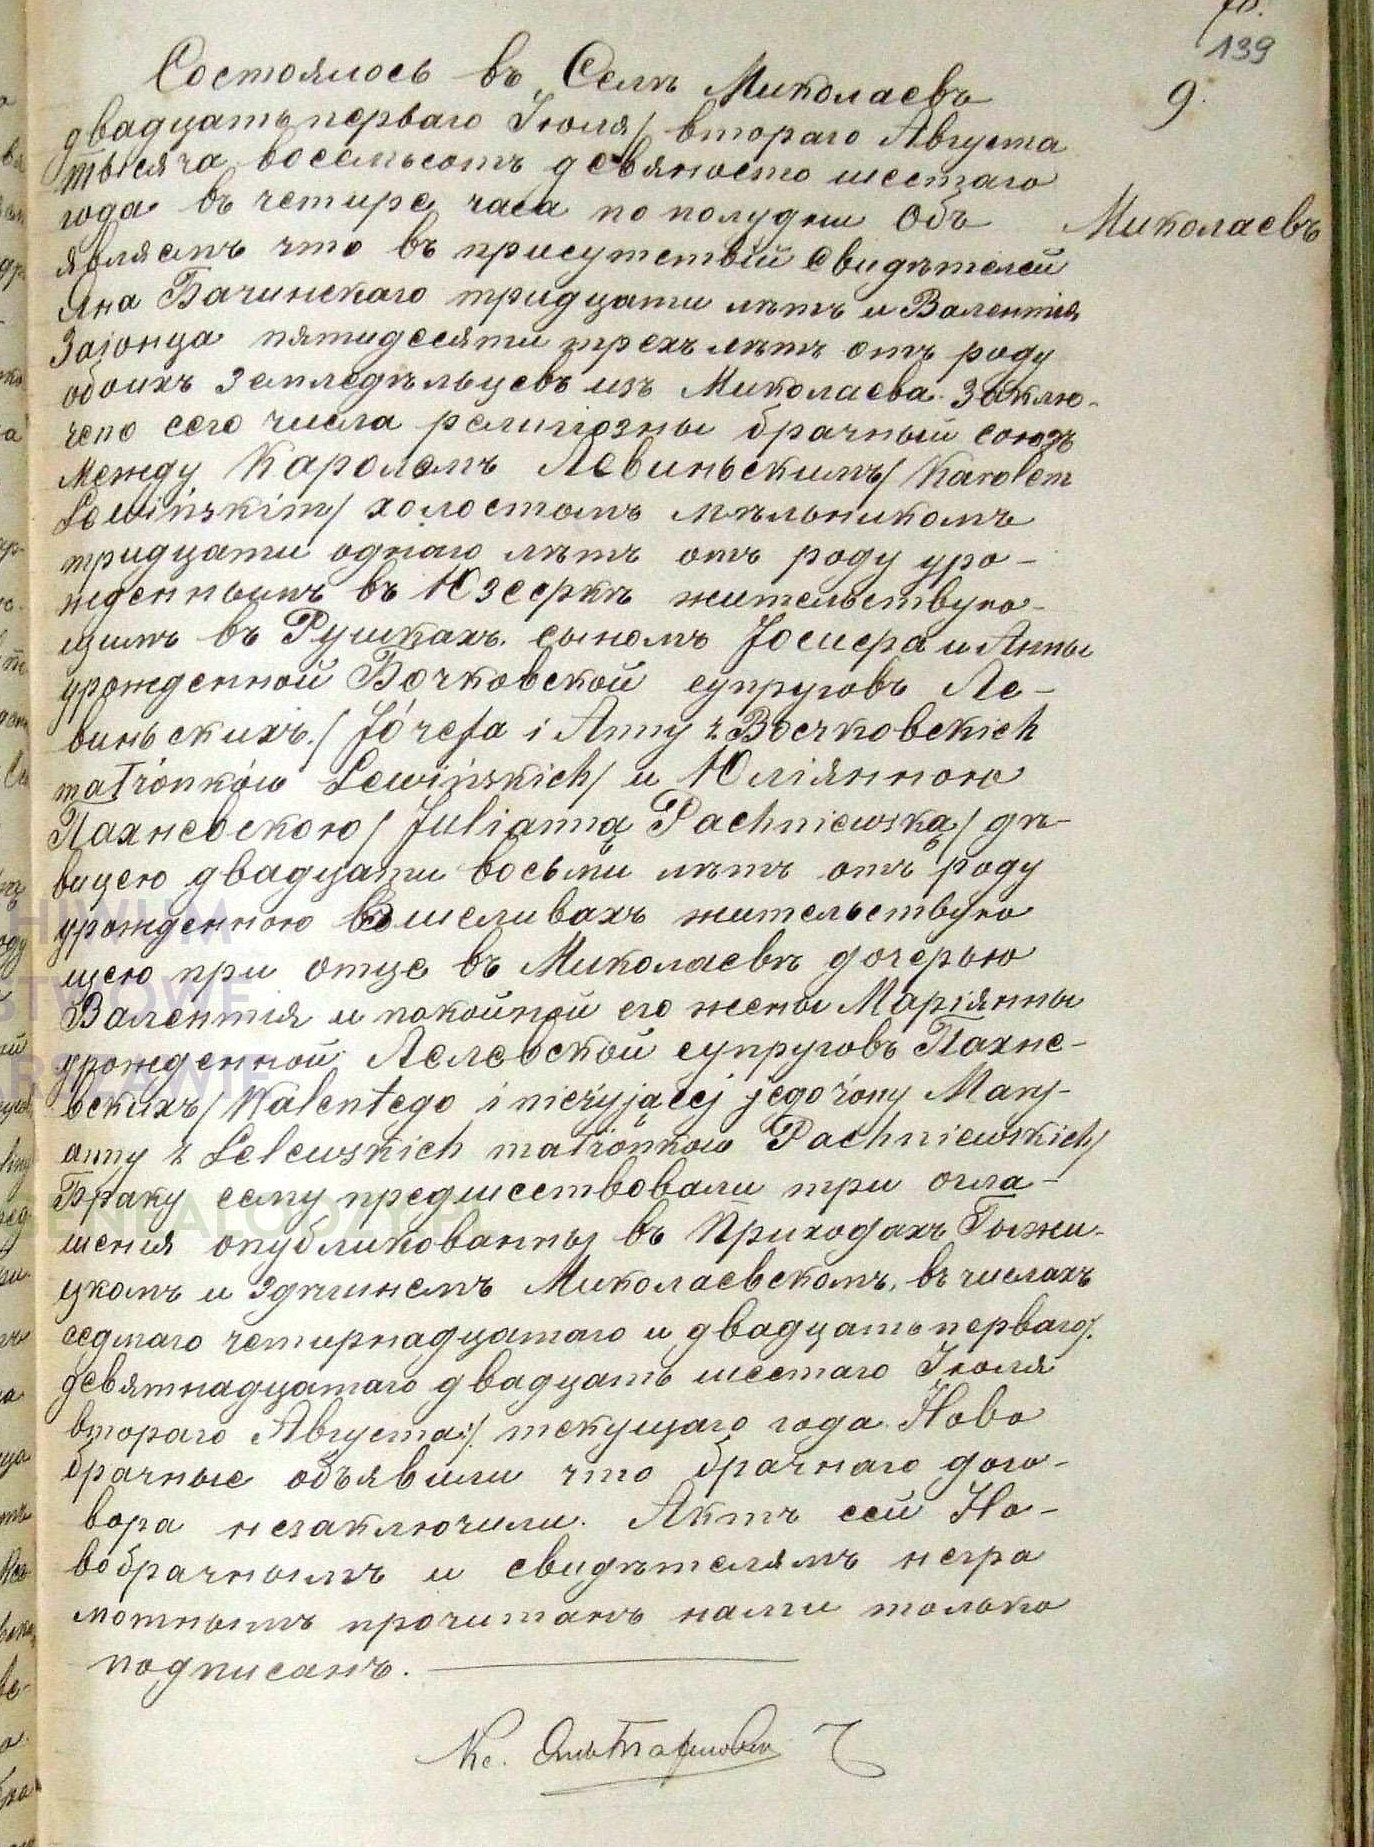 78.
139
9.
Миколаевъ
Состоялось въ Селѣ Миколаевѣ
двадцать перваго Іюля/ втораго Августа
тысяча восемьсотъ девяносто шестаго
года въ четире часа по полудни Объ
являемъ что въ присутствіи свидѣтелей
Яна Бачинскаго тридцати лѣтъ и Валентія
Заіонца пятидесяти трехъ лѣтъ отъ роду
обоихъ земледѣльцевъ изъ Миколаева. Заклю-
чено сего числа религіозны брачный союзъ
между Каролемъ Левиньскимъ/ Karolem
Lewińskim/ холостомъ мѣльникомъ
тридцати однаго лѣтъ отъ роду уро-
жденнымъ въ Юзефкѣ жительствую-
щимъ въ Рушкахъ. сыномъ Іосифа и Анны
урожденной Бочковской супруговъ Ле-
виньскихъ./ Józefa i Anny z Boczkowskich
małżonków Lewińskich/ и Юліянною
Пахневскою/ Julianną Pachniewską/ дѣ-
вицею двадцати восьми лѣтъ отъ роду
урожденною въ Шеливахъ жительствую
щею при отце въ Миколаевѣ дочерью
Валентія и покойной его жены Маріянны
урожденной Лелевской супруговъ Пахне-
вскихъ/ Walentego i nieżyjącej jego żony Mary-
anny z Lelewskich małżonków Pachniewskich/
Браку сему предшествовали три огла-
шенія опубликованны въ Приходахъ Гыжи-
цкомъ и здѣшнемъ Миколаевскомъ, въ числахъ
седмаго четирнадцатаго и двадцать перваго/.
девятнадцатаго двадцать шестаго Іюля
втораго Августа:/. текущаго года. Ново
брачные объявили что брачнаго дого-
вора незаключили. Актъ сей Но-
вобрачнымъ и свидѣтелямъ негра
мотнымъ прочитанъ нами только
подписанъ.
Кс.